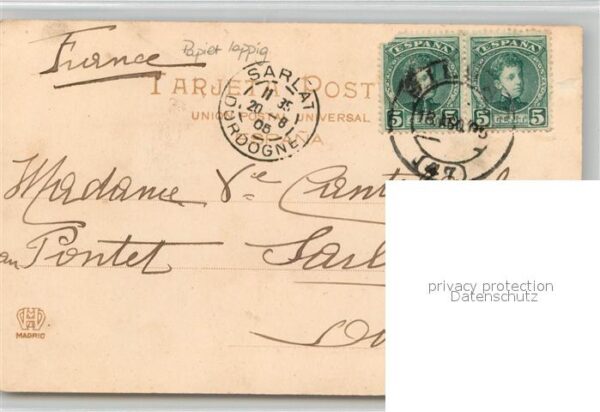 France
Papier lappig
TARJETA POST
UNION POSTAL UNIVERSAL
ESPAÑA
SARLAT
11 35
20 - 8
05
DORDOGNE
ESPAÑA ESPAÑA
5 5 5
(47)
Madame Vᵉ
au Pontet Sarl
privacy protection
Datenschutz
MADRID